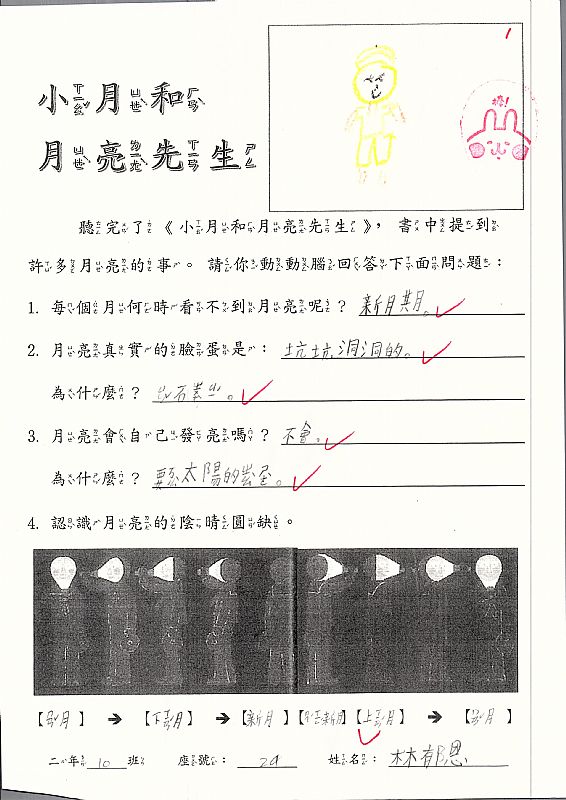 棒!
小月和
月亮先生
聽完了《小月和月亮先生》,書中提到
許多月亮的事。請你動動腦回答下面問題:
1. 每個月何時看不到月亮呢?新月其月。
2. 月亮真實的臉蛋是:坑坑洞洞的。
為什麼?
3. 月亮會自己發亮嗎?不會。
為什麼?太陽的
4. 認識月亮的陰晴圓缺。
【月】→【下月】→【新月】【新月】【上月】→【月】
二年10班 座號:29 姓名:林郁恩